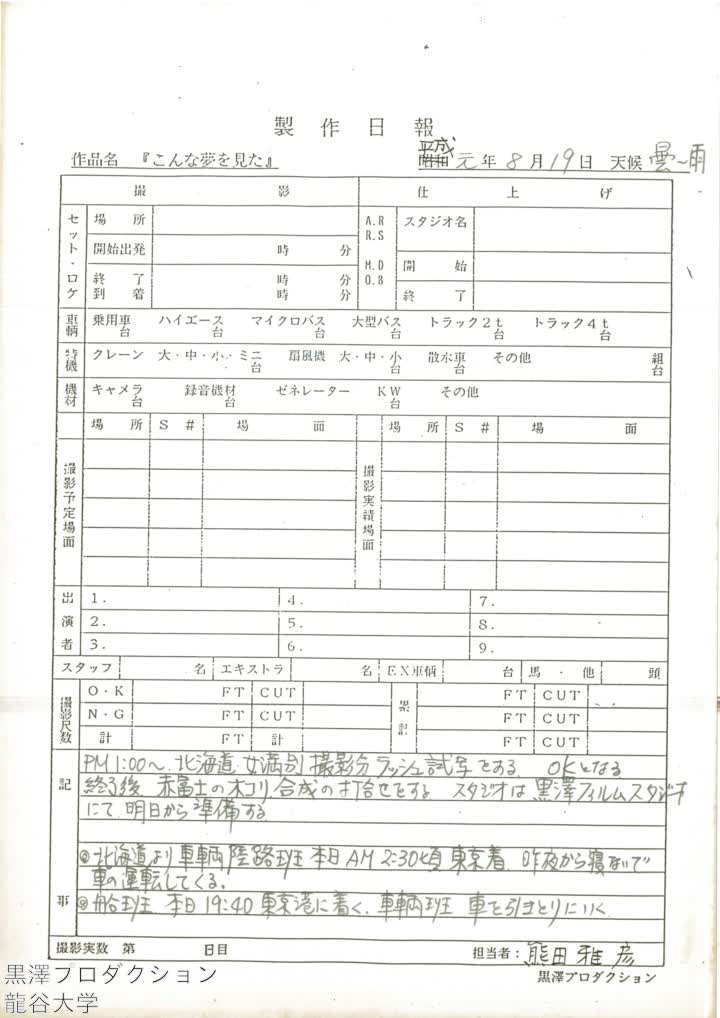 製作日報
作品名 『こんな夢を見た』 昭和 平成 元年 8月 19日 天候 曇〜雨
撮影 仕上げ
セット・ロケ 場所 A.R R.S M.D O.B スタジオ名
開始出発 時 分 開始
終了 時 分 終了
到着 時 分
車輌 乗用車 台 ハイエース 台 マイクロバス 台 大型バス 台 トラック2t 台 トラック4t 台
特機 クレーン 大・中・小・ミニ 台 扇風機 大・中・小 台 散水車 台 その他 組 台
機材 キャメラ 台 録音機材 台 ゼネレーター KW 台 その他
場所 S# 場面 場所 S# 場面
撮影予定場面 撮影実績場面
出演者 1. 4. 7.
2. 5. 8.
3. 6. 9.
スタッフ 名 エキストラ 名 EX車輌 台 馬・他 頭
撮影尺数 O・K FT CUT 累計 FT CUT
N・G FT CUT FT CUT
計 FT 計 FT CUT
記事 PM1:00〜、北海道 女満別 撮影分ラッシュ試写をする。 OKとなる
終了後、赤富士のホコリ合成の打合せをする。 スタジオは黒澤フィルムスタジオ
にて、明日から準備する
◎北海道より車輌陸路班 本日AM 2:30頃 東京着、昨夜から寝ないで
車の運転してくる。
◎船班 本日19:40東京港に着く、車輌班 車を引きとりにいく
撮影実数 第 日目 担当者: 熊田雅彦
黒澤プロダクション
黒澤プロダクション
龍谷大学